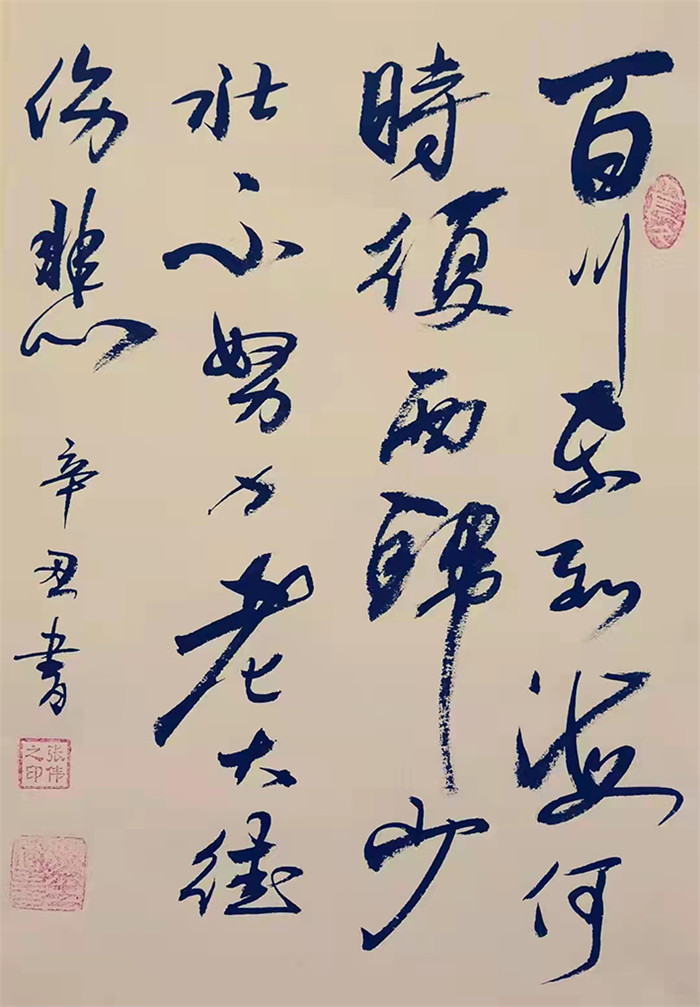 百川东到海何
時復西歸少
壮不努力老大徒
伤悲
辛丑書
张伟之印